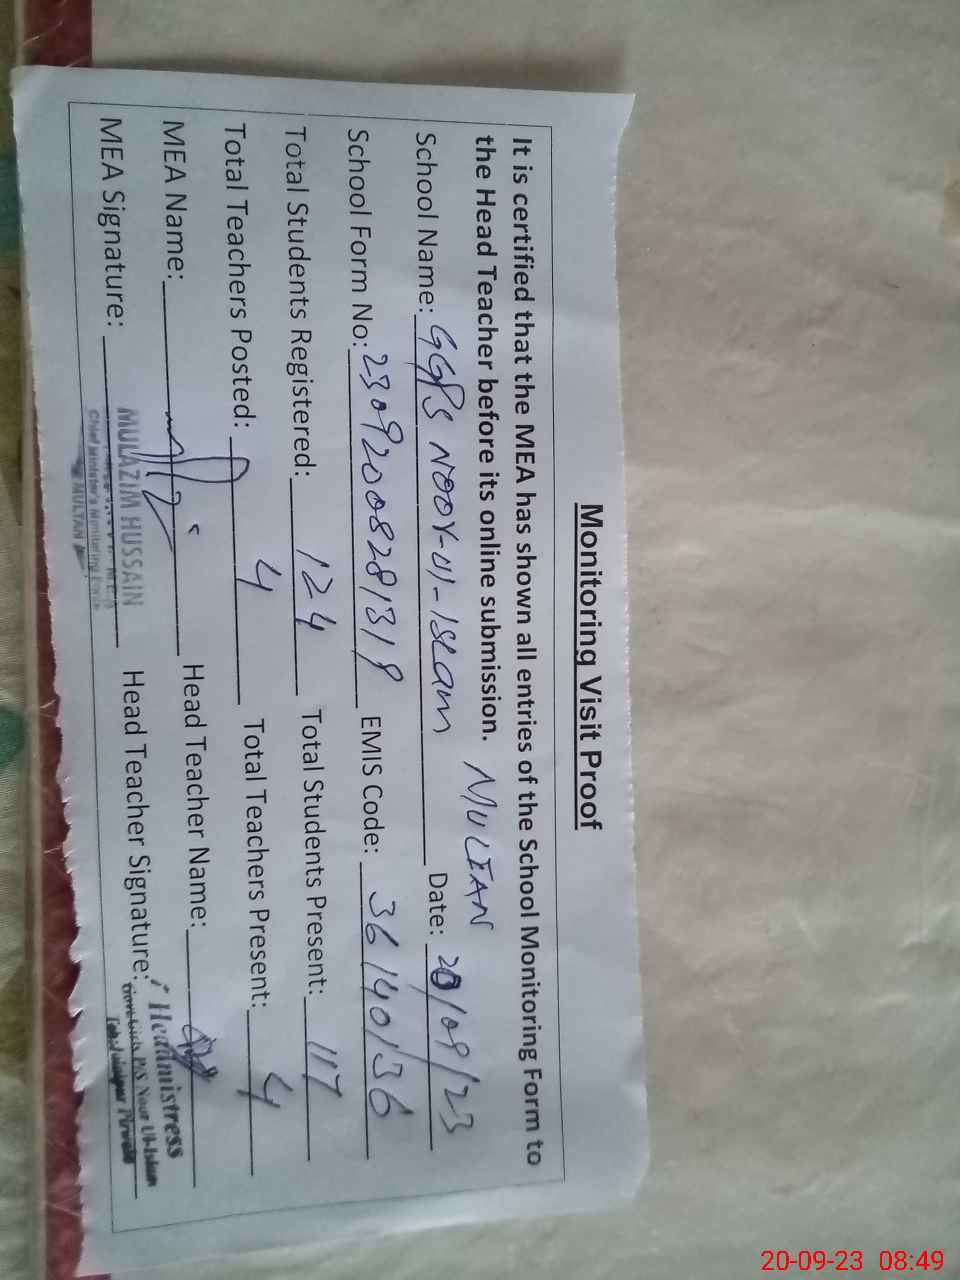 Monitoring Visit Proof
It is certified that the MEA has shown all entries of the School Monitoring Form to
the Head Teacher before its online submission. MULTAN
School Name: GGPS Noor-ul-Islam Date: 20/09/23
School Form No: 23092008281318 EMIS Code: 36140136
Total Students Registered: 124 Total Students Present: 117
Total Teachers Posted: 4 Total Teachers Present: 4
MEA Name: Head Teacher Name:
MEA Signature: MULAZIM HUSSAIN Head Teacher Signature: Headmistress
Chief Minister's Monitoring Govt. Girls P/S Noor Ul-Islam
MULTAN Pirwala
20-09-23 08:49